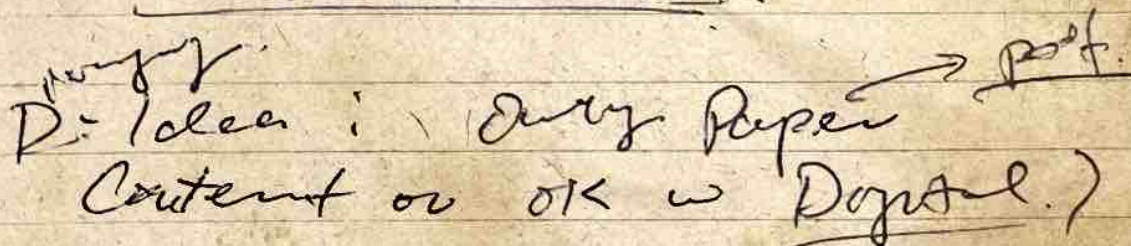 D- Idea : Only Paper → post.
Content or OK w Digital.)